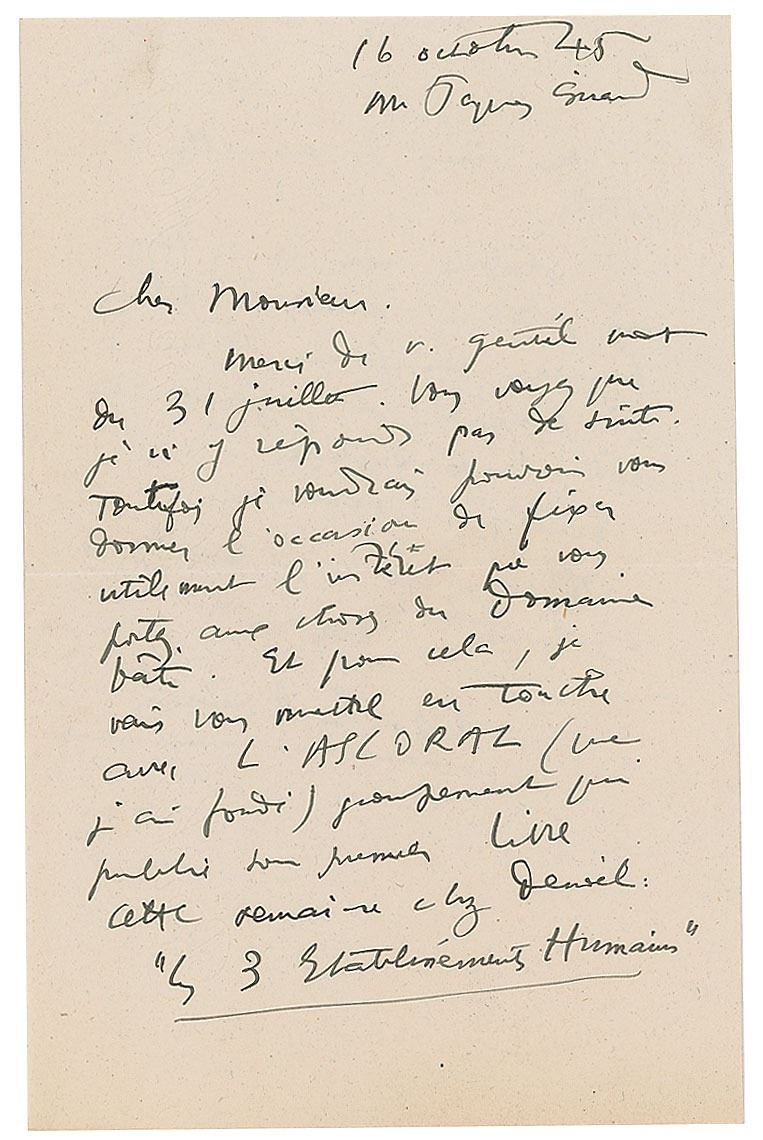 16 octobre 45
M Jaques
Cher Monsieur.
Merci de v. gentil mot
du 31 juillet. Vous voyez que
je n'y réponds pas de suite.
Toutefois je voudrais pouvoir vous
donner l'occasion de fixer
utilement l'intérêt que vous
portez aux choses du Domaine
bâti. Et pour cela, je
vais vous mettre en touche
avec L'ASCORAL (que
j'ai fondé) groupement qui
publie son premier Livre
cette semaine chez Denoël:
"Les 3 Etablissements Humains"